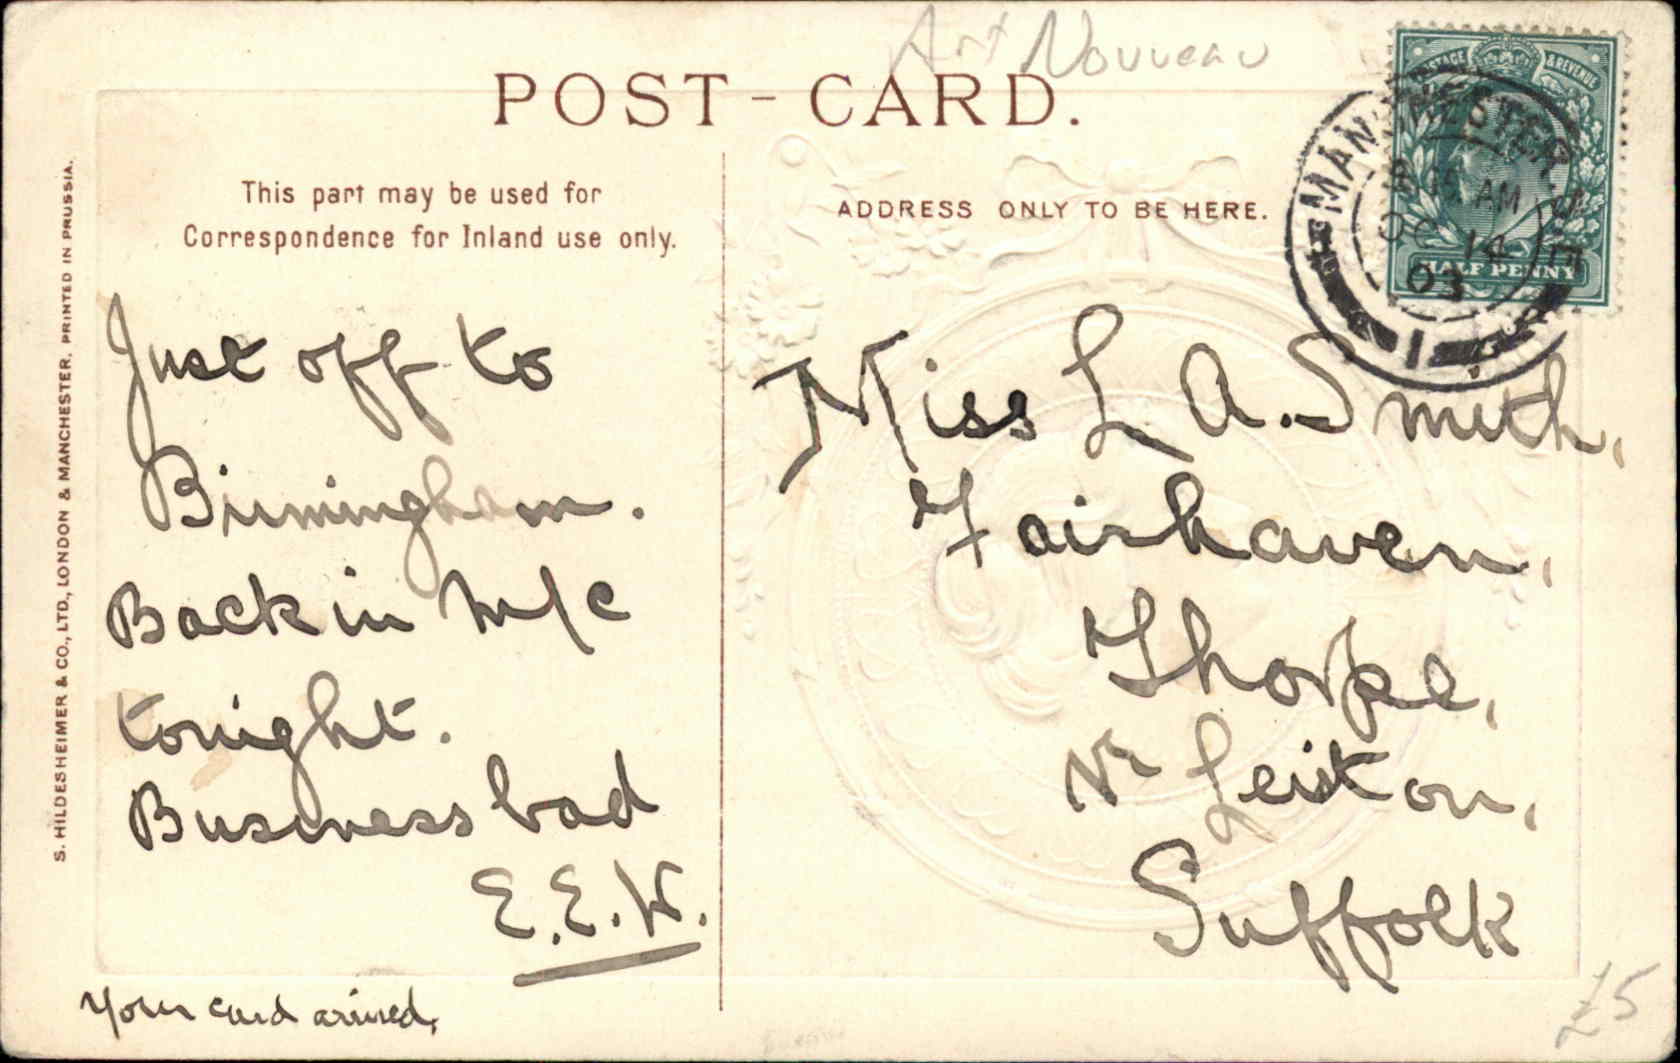 Art Nouveau
POST-CARD.
This part may be used for
Correspondence for Inland use only.
ADDRESS ONLY TO BE HERE.
POSTAGE & REVENUE
HALF PENNY
MANCHESTER
AM
OC 14
03
1
Just off to
Birmingham.
Back in M/c
tonight.
Business bad
E.E.W.
Your card arrived.
Miss L A. Smith,
Fairhaven,
Thorpe,
Nr Leiston,
Suffolk
£5
S. HILDESHEIMER & CO., LTD., LONDON & MANCHESTER. PRINTED IN PRUSSIA.